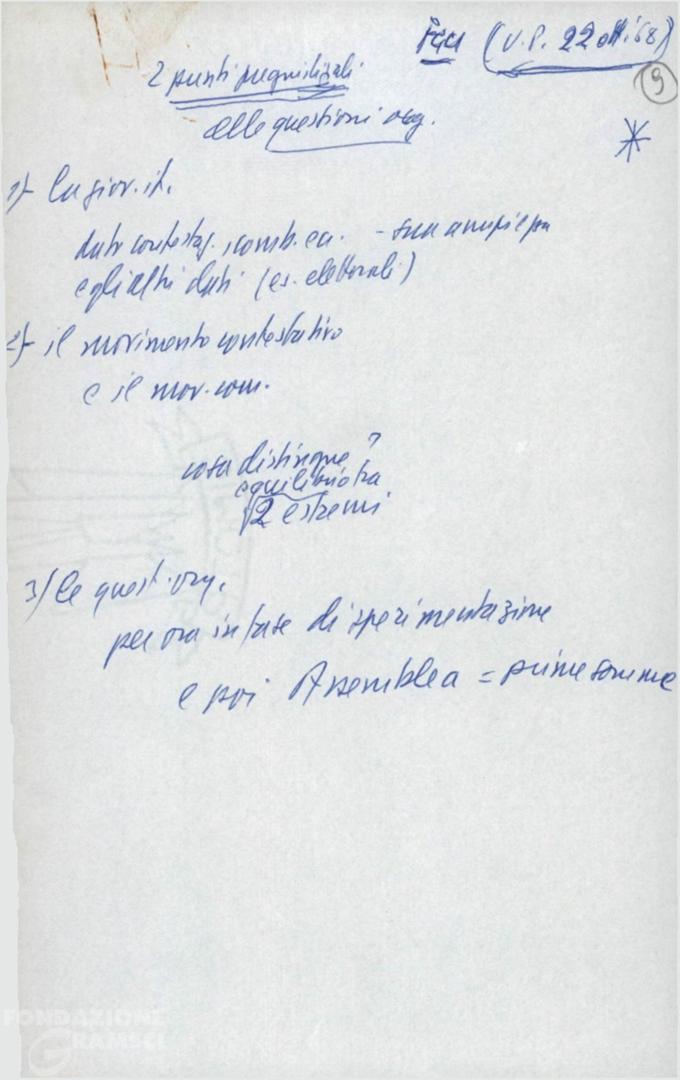 Fgci (U.P. 22 ott. '68)
9
2 punti pregiudiziali
alle questioni org.
*
1) la giov. it.
dato contestaz. comb. ecc. - sua ampiezza
e gli altri dati (es. elettorali)
2) il movimento contestativo
e il mov. com.
cosa distingue?
equilibrio tra
2 estremi
3) le quest. org.
per ora in fase di sperimentazione
e poi Assemblea = prime somme
FONDAZIONE
GRAMSCI